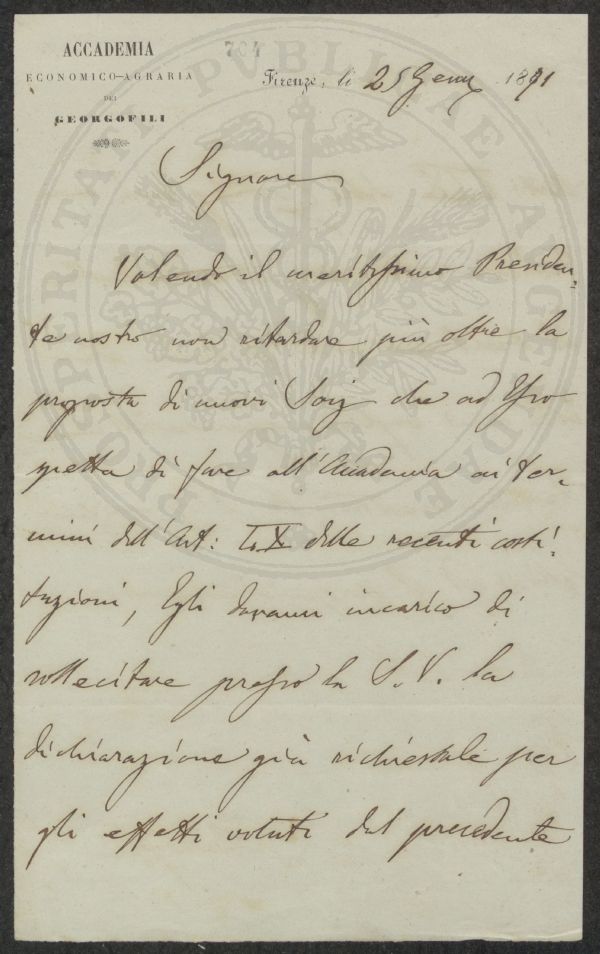 ACCADEMIA
ECONOMICO-AGRARIA
DEI
GEORGOFILI
704
Firenze, li 25 Genn 1871
PROSPERITATI PVBLICAE AVGENDAE
Signore
Volendo il meritissimo Presiden-
te nostro non ritardare più oltre la
proposta di nuovi Socj che ad Esso
spetta di fare all'Accademia ai ter-
mini dell'Art: IX delle recenti costi-
tuzioni, Egli davami incarico di
sollecitare presso la S. V. la
dichiarazione già richiestale per
gli effetti voluti dal precedente